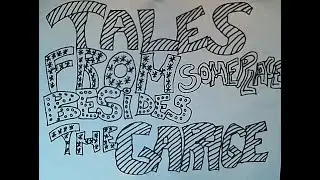 TALES
FROM SOMEPLACE
BESIDES
THE GARAGE